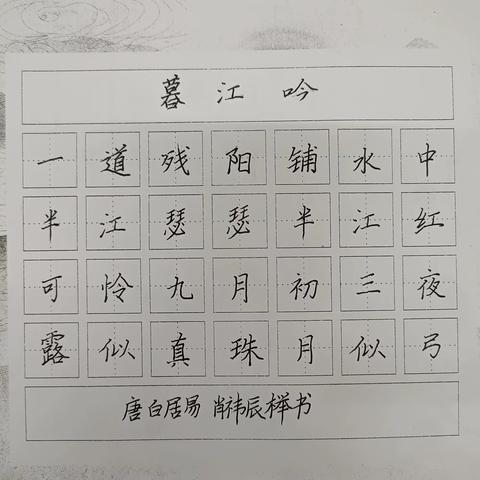 暮江吟
一道残阳铺水中
半江瑟瑟半江红
可怜九月初三夜
露似真珠月似弓
唐白居易 肖祎辰榉书